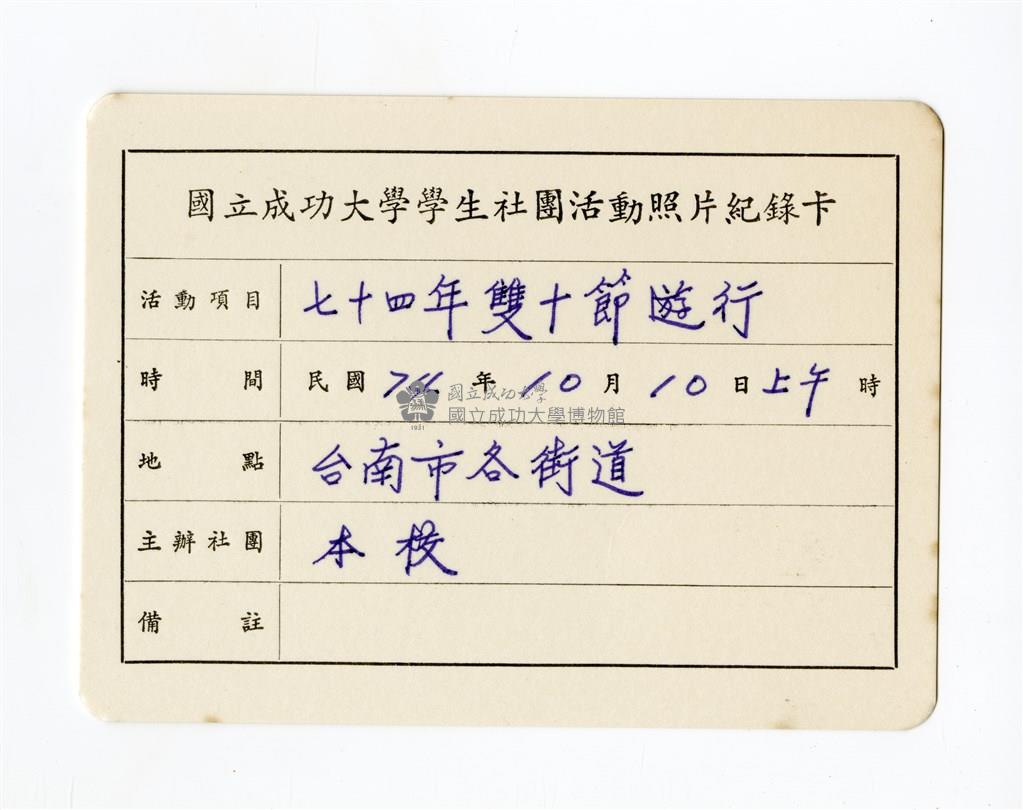 國立成功大學學生社團活動照片紀錄卡
活動項目 七十四年雙十節遊行
時間 民國 74 年 10 月 10 日 上午 時
國立成功大學
國立成功大學博物館
1931
地點 台南市各街道
主辦社團 本校
備註